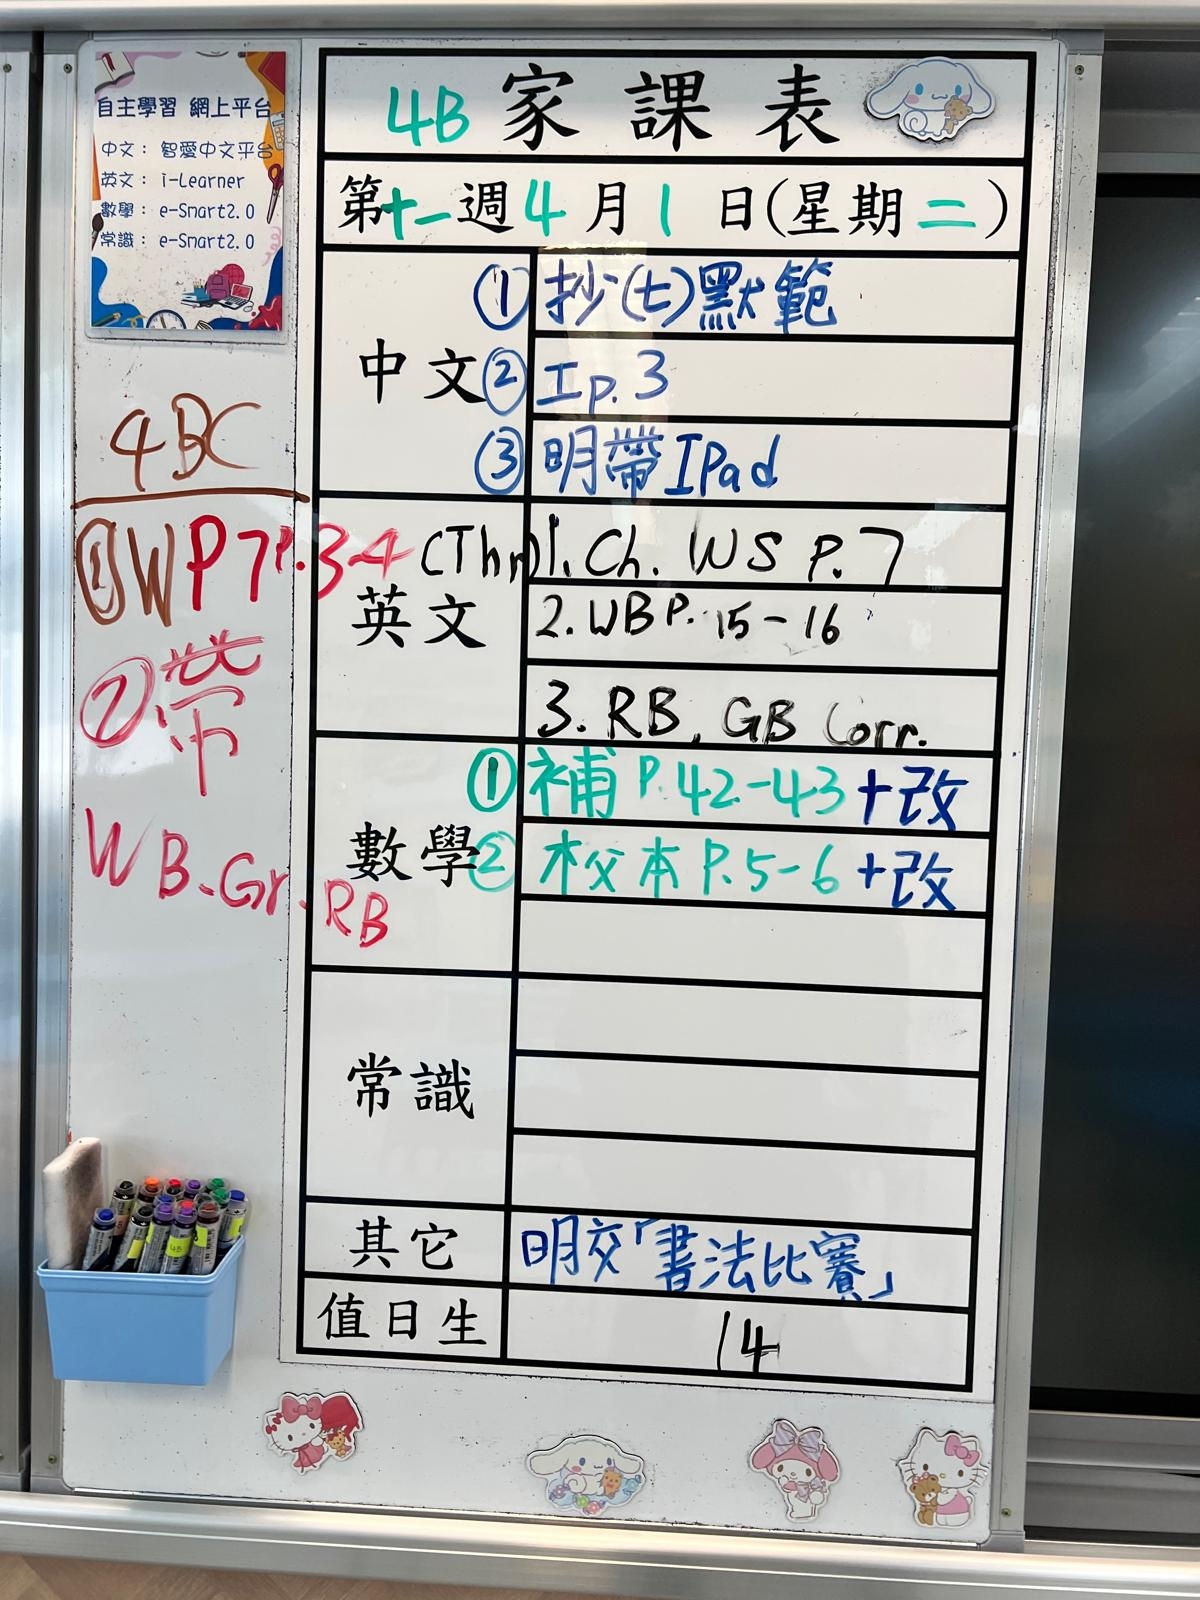 自主學習 網上平台
中文：智愛中文平台
英文：i-Learner
數學：e-Smart2.0
常識：e-Smart2.0
4B 家課表
第十一週4月1日(星期二)
中文
① 抄(七)默範
② 工p.3
③ 明帶IPad
英文
1. Ch. WS P.7
2. WB P. 15-16
3. RB, GB Corr.
數學
① 補 P.42-43+改
② 校本 P.5-6+改
常識
其它
明交「書法比賽」
值日生
14
4BC
① WP7 P.3-4 (Thr)
② 帶
WB, Gr. RB